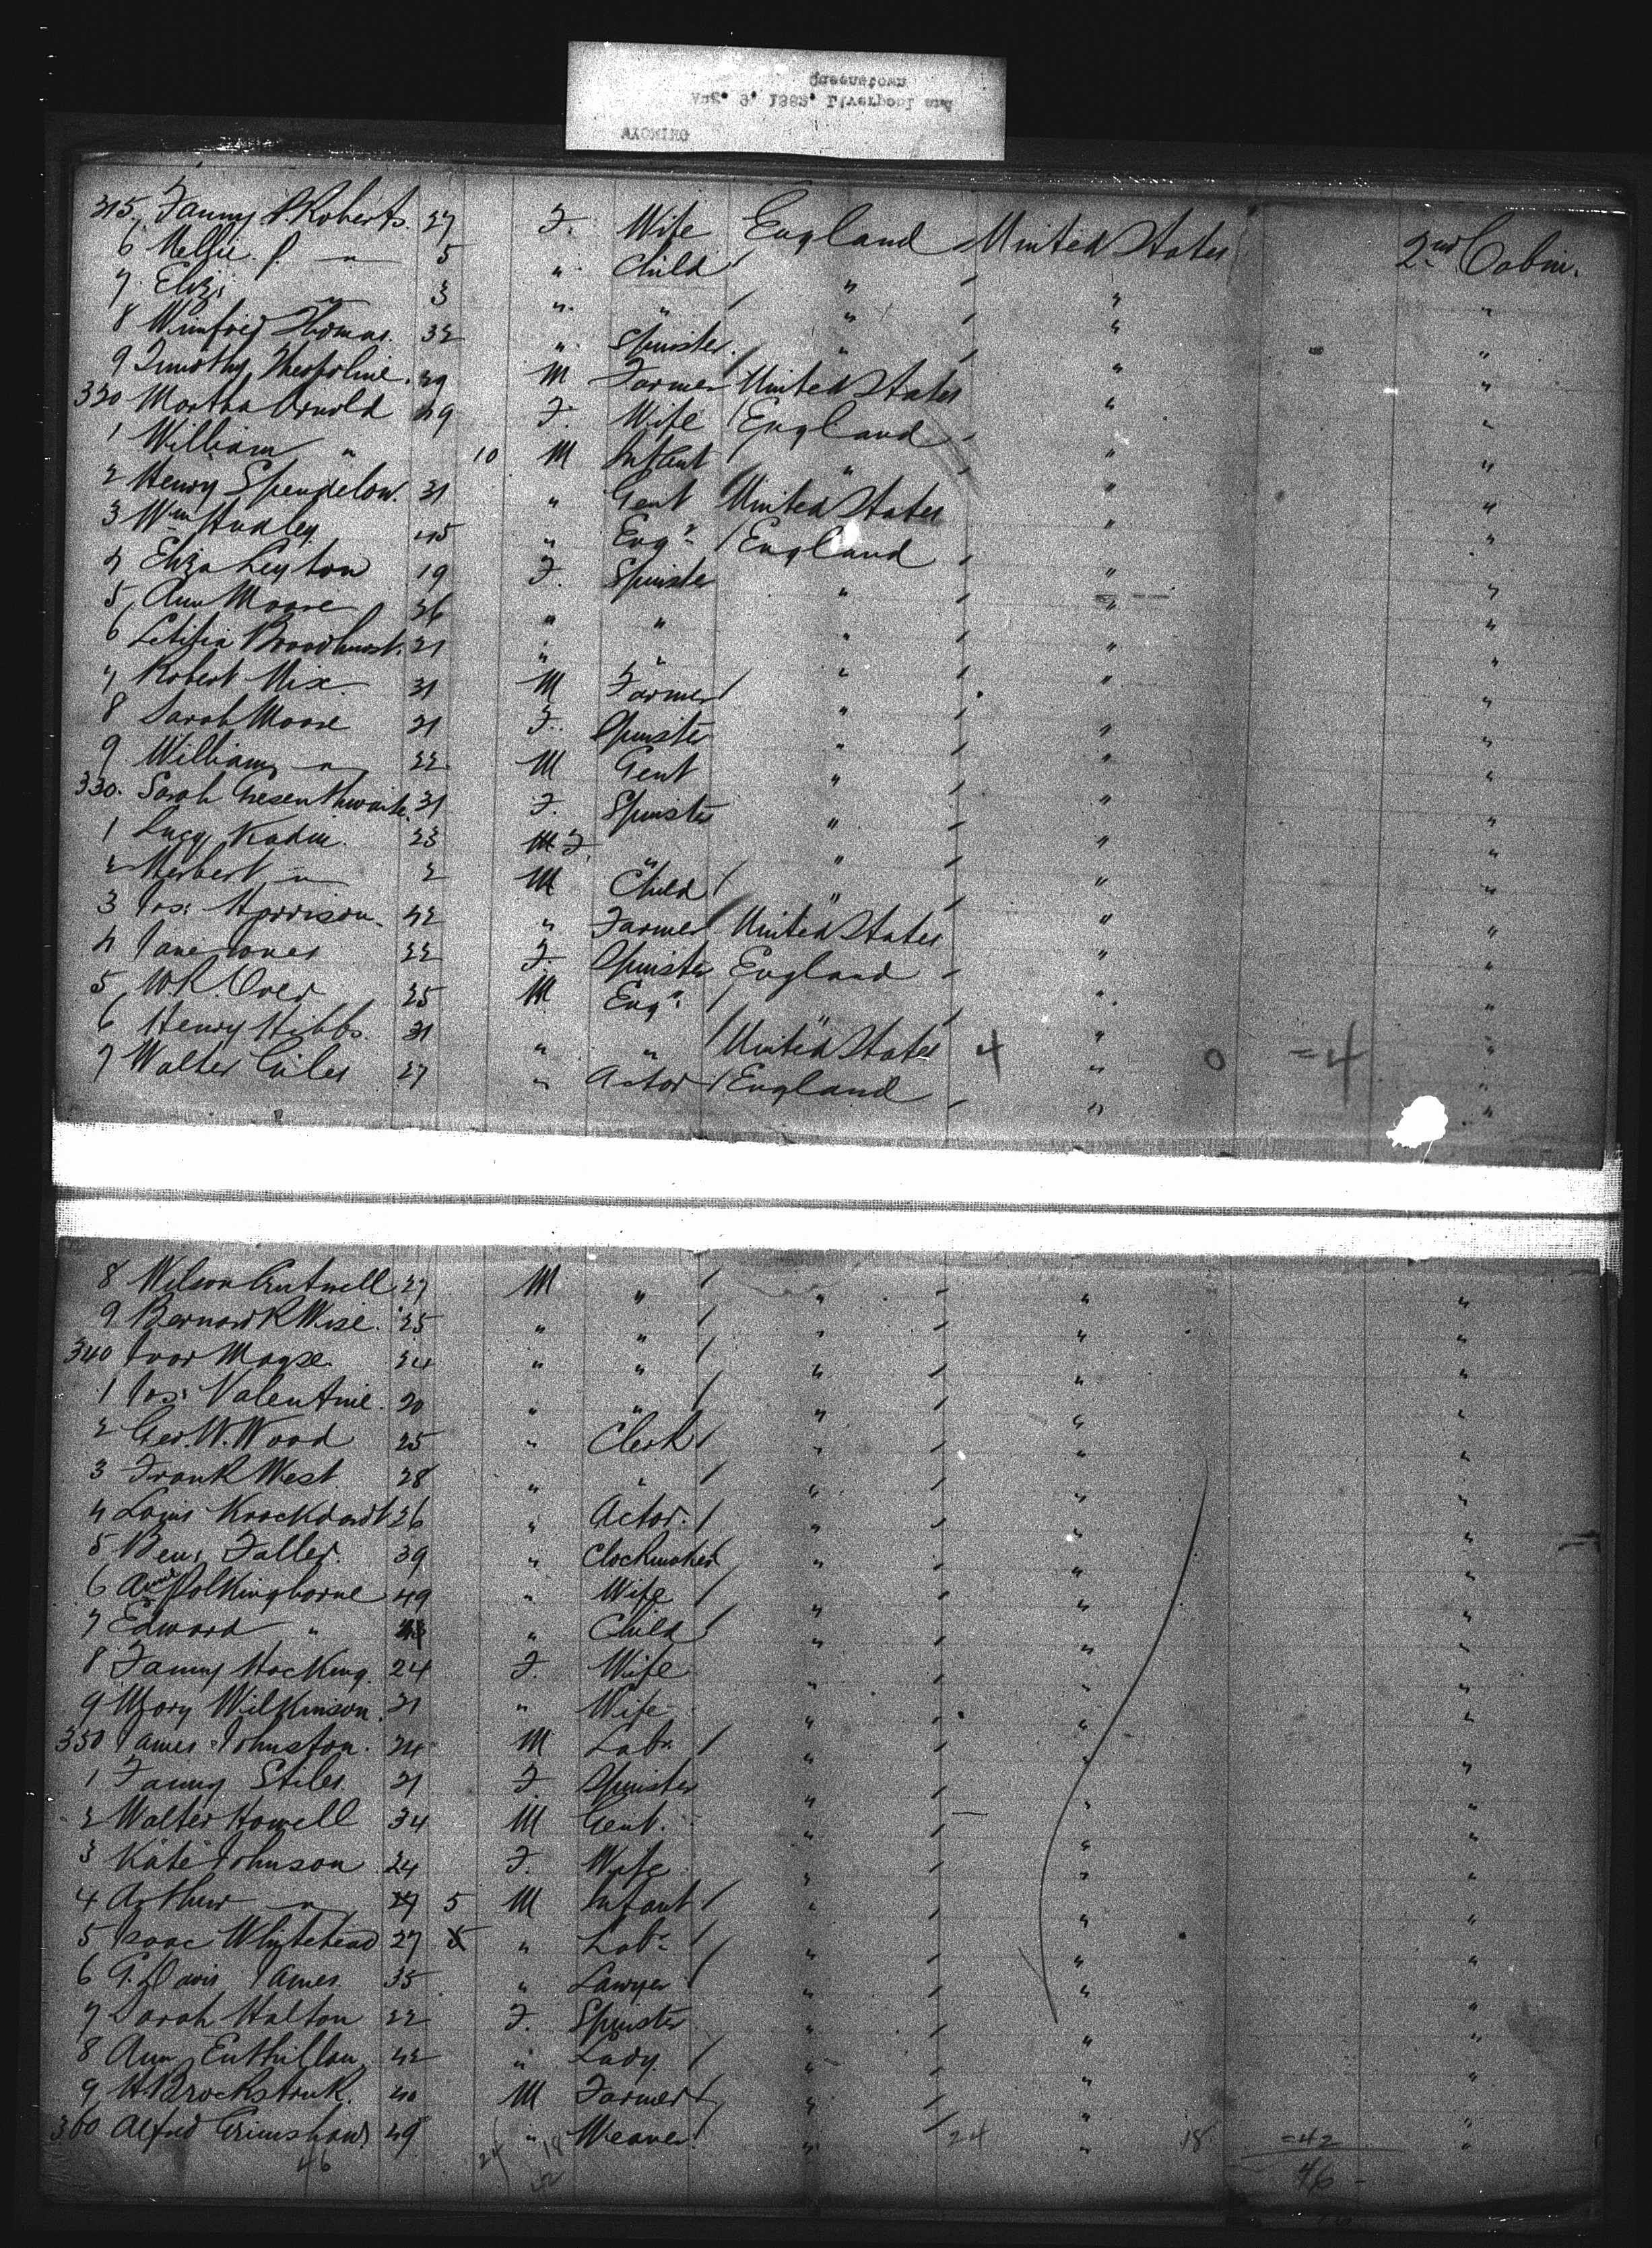 WYOMING
Aug. 3, 1885. Liverpool and
Queenstown
315. Fanny P. Roberts. 27 F. Wife England United States 2nd Cabin.
6 Nellie P. " 5 " Child " " "
7 Eliz: " 3 " " " " "
8 Winifred Thomas. 32 " Spinster. " " "
9 Timothy 29 M Farmer United States " "
320 Martha Arnold 29 F. Wife England " "
1 William " 10 M Infant " " "
2 Henry Spendelow. 31 " Gent United States " "
3 Wm Huxley 45 " Engr England " "
4 Eliza Leyton 19 F. Spinster " " "
5 Ann Moore 36 " " " " "
6 Letitia Broadhurst. 21 " " " " "
7 Robert Nix. 31 M Farmer " " "
8 Sarah Moore 21 F. Spinster " " "
9 William " 22 M Gent " " "
330. Sarah 31 F. Spinster " " "
1 Lucy Kadin. 23 M F. " " " "
2 Herbert " 2 M Child " " "
3 Jos: Morrison 42 " Farmer United States " "
4 Jane Jones 22 F. Spinster England " "
5 W R. Over 25 M Engr " " "
6 Henry Hibbs. 31 " " United States 4 " 0 =4 "
7 Walter Giles 27 " Actor England " "
8 Wilson Crutwell 27 M " " " "
9 Bernard R Wise. 25 " " " " "
340 Ivor 24 " " " " "
1 Jos: Valentine. 20 " " " " "
2 Geo. W. Wood 25 " Clerk " " "
3 Frank West 28 " " " " "
4 Louis 26 " Actor. " " "
5 Benj Faller. 39 " Clockmaker " " "
6 Anne Polkinghorne 49 " Wife " " "
7 Edward " " Child " " "
8 Fanny Hocking. 24 F. Wife " " "
9 Mary Wilkinson. 31 " Wife " " "
350 James Johnston. 24 M Labr " " "
1 Fanny Stiles 21 F Spinster " " "
2 Walter Howell 34 M Gent. " " "
3 Kate Johnson 24 F. Wife " " "
4 Arthur " 5 M Infant " " "
5 Isaac Whitehead 27 " Labr " " "
6 G. Davis James. 35 " Lawyer " " "
7 Sarah Halton 22 F. Spinster " " "
8 Ann 42 " Lady. " " "
9 H. Brockstruk. 40 M Farmer " " "
360 Alfred Grimshaw 49 " Weaver. " 24 " 18 =42 "
46 24 18 46